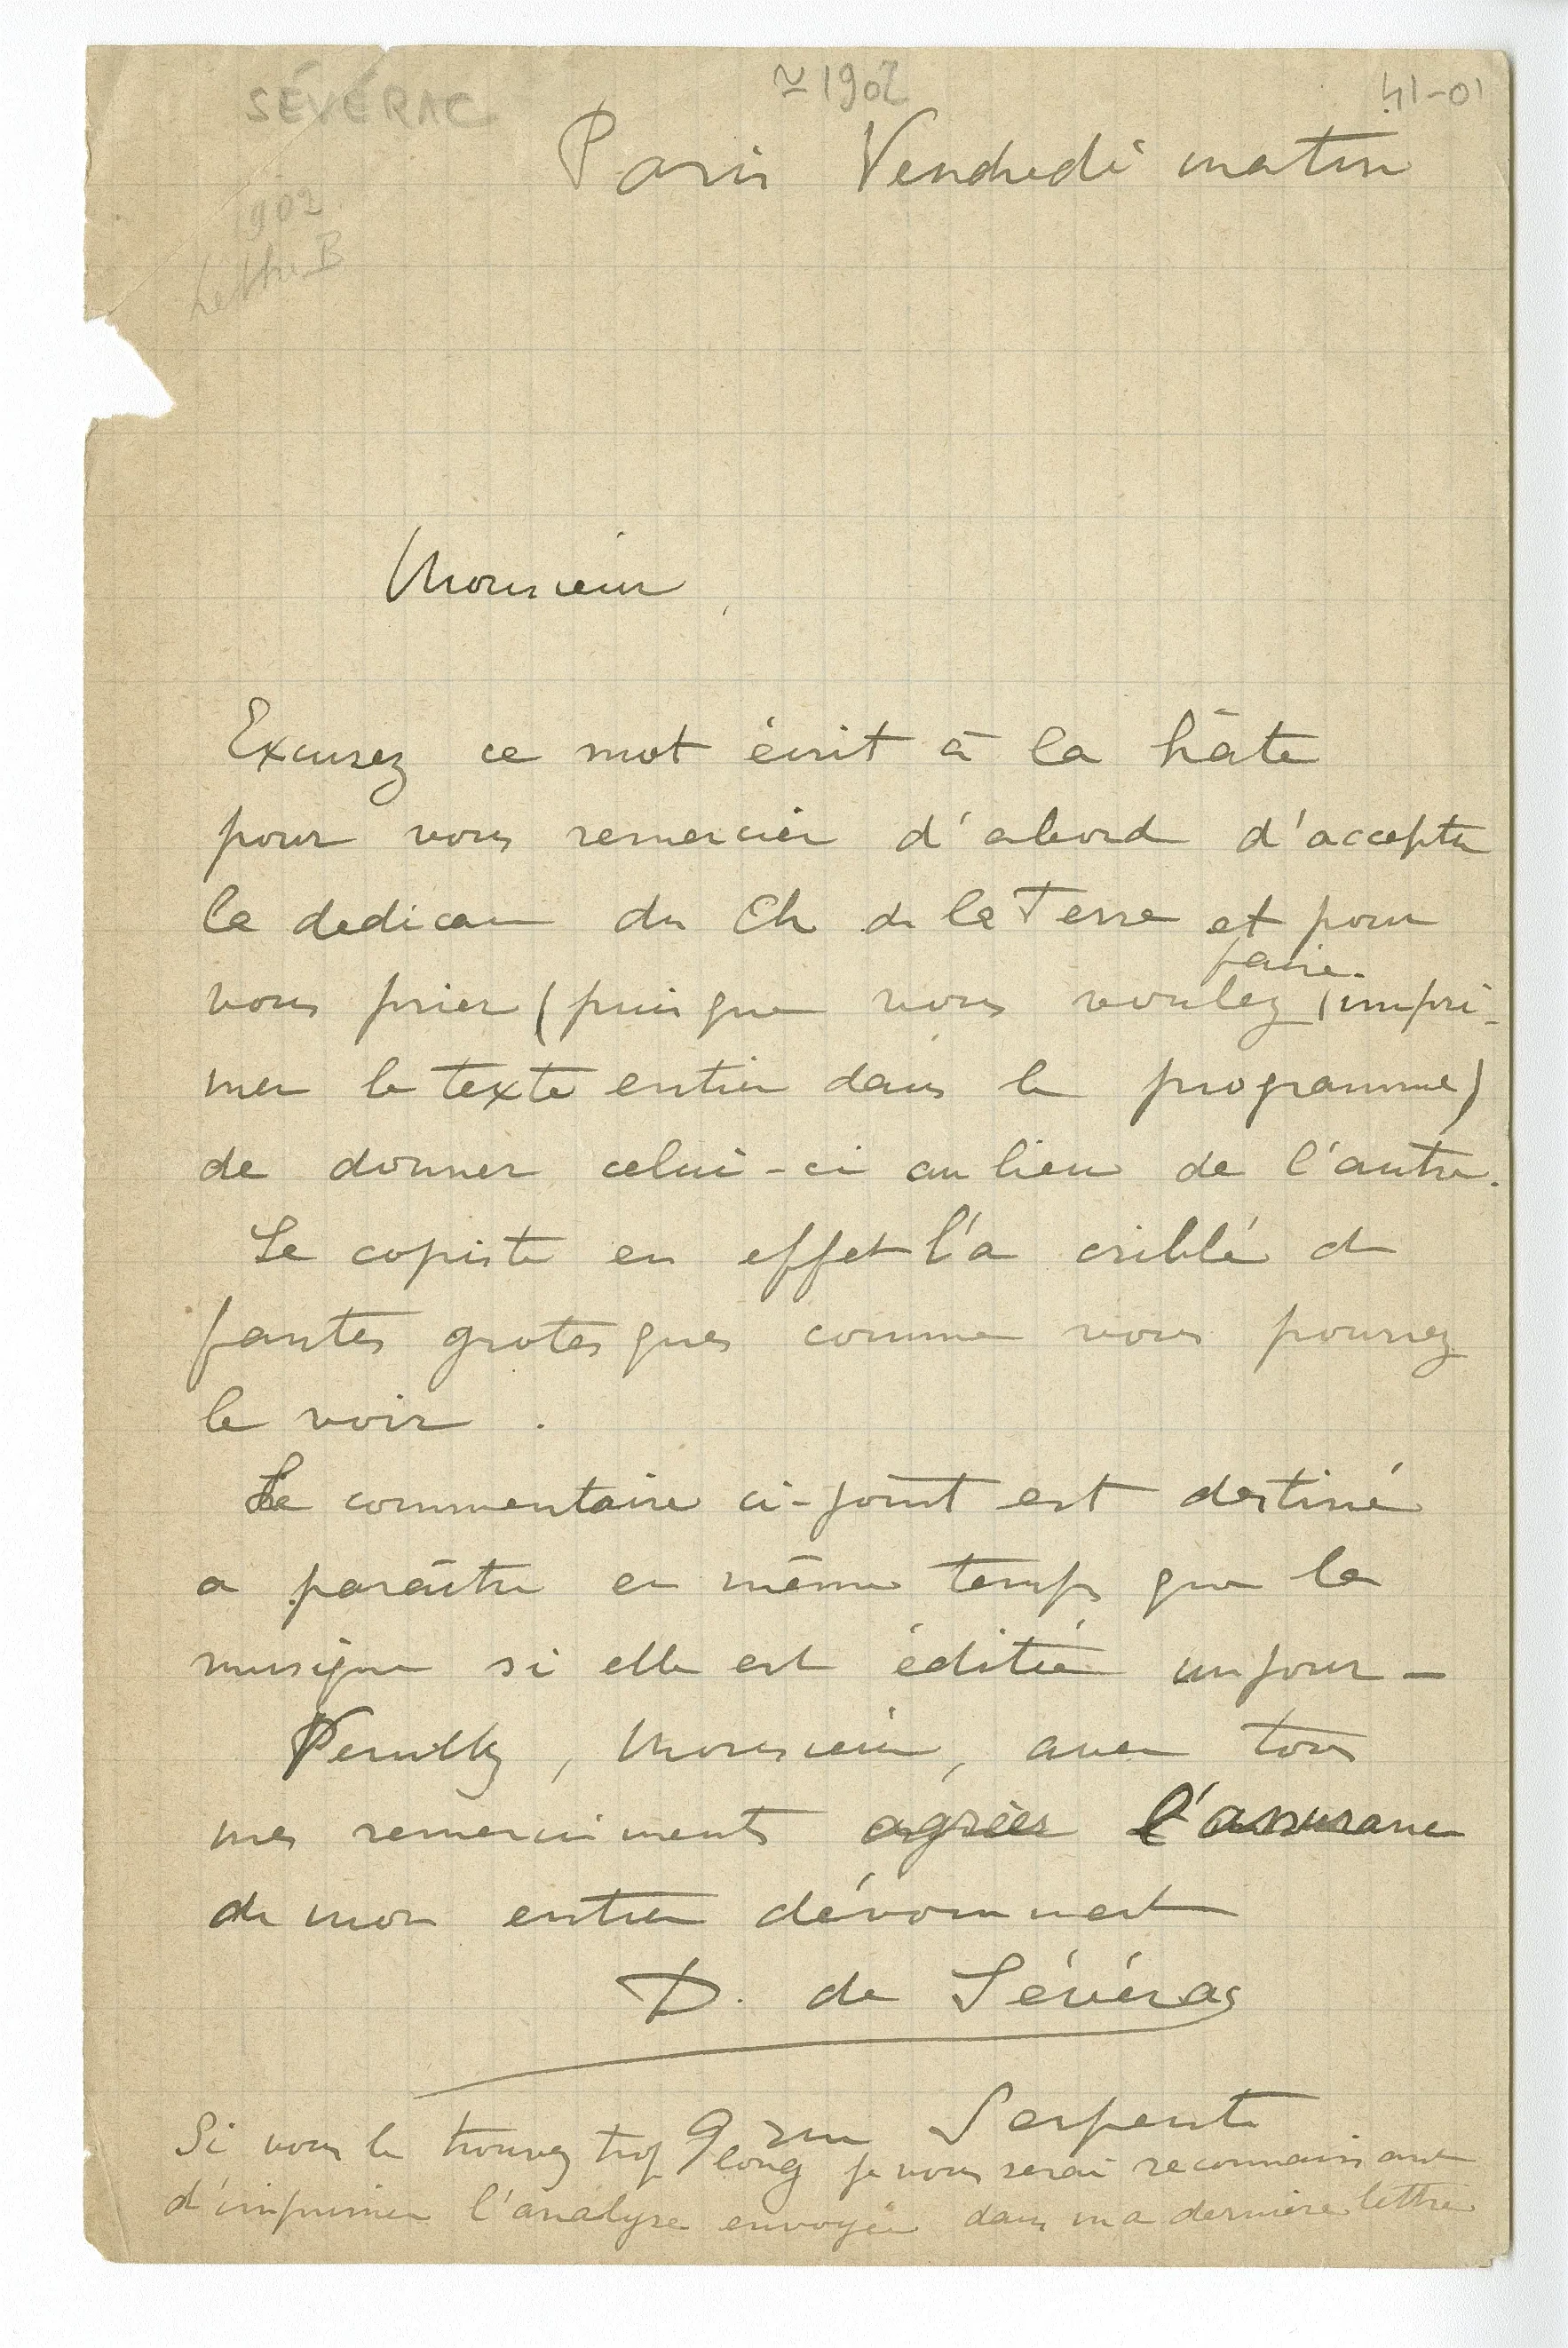 SÉVÉRAC
≃ 1902
41-01
1902
Lettre B
Paris Vendredi matin
Monsieur,
Excusez ce mot écrit à la hâte
pour vous remercier d'abord d'accepter
la dedicace du Ch de la Terre et pour
faire
vous prier (puisque vous voulez impri-
mer le texte entier dans le programme)
de donner celui-ci au lieu de l'autre.
Le copiste en effet l'a criblé de
fautes grotesques comme vous pourrez
le voir.
Le commentaire ci-joint est destiné
a paraître en même temps que la
musique si elle est éditée un jour -
Veuillez, Monsieur, avec tous
mes remerciments agréer l'assurance
de mon entier dévouement
D. de Sévérac
9 rue Serpente
Si vous le trouvez trop long je vous serai reconnaissant
d'imprimer l'analyse envoyée dans ma dernière lettre